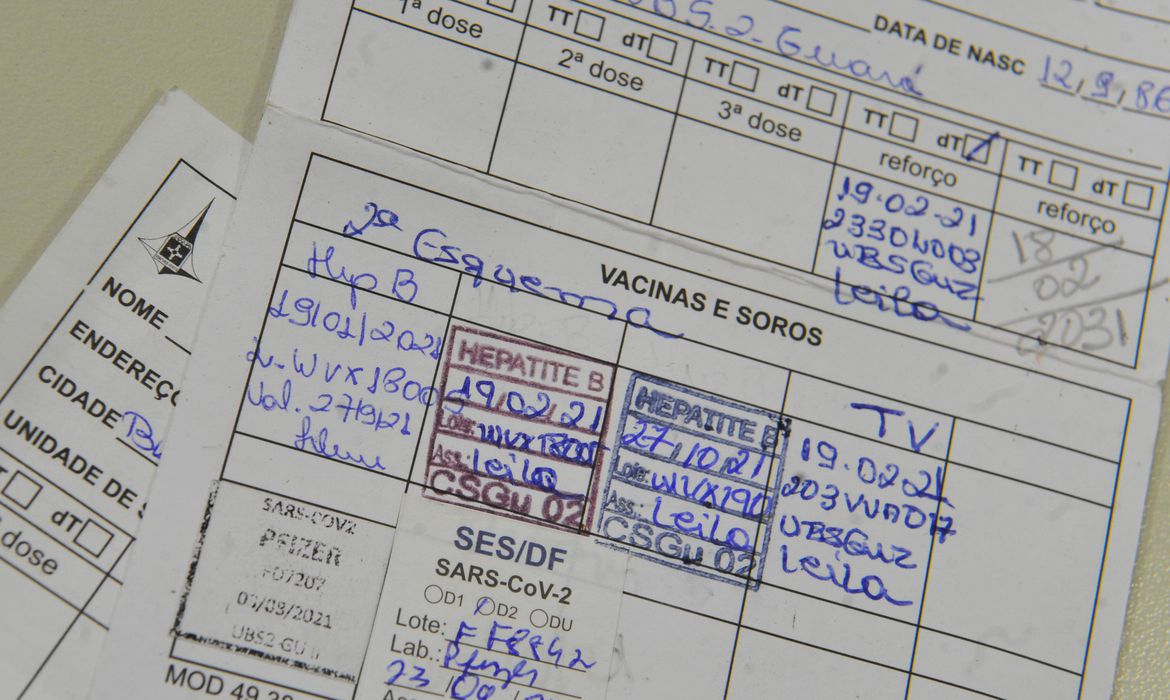 UBS.2-Guará
DATA DE NASC 12,9,86
1ª dose
TT dT
2ª dose
TT dT
3ª dose
TT dT
reforço
19.02-21
UBSGU2
Leila
TT dT
reforço
18
02
2031
2º Esquema
VACINAS E SOROS
Hep B
19/01/2021
Val. 27/9/21
HEPATITE B
19/02/21
Lote:
Ass.: Leila
CSGu 02
HEPATITE B
27/10/21
Lote: WVX190
Ass.: Leila
CSGu 02
TV
19.02.21
UBSGU2
Leila
SARS-COV2
PFIZER
FD7207
UBS2 GU II
SES/DF
SARS-CoV-2
D1 D2 DU
Lote: FF8842
Lab.: Pfizer
MOD 49.
NOME
ENDEREÇ
CIDADE
UNIDADE DE S
dT
dose